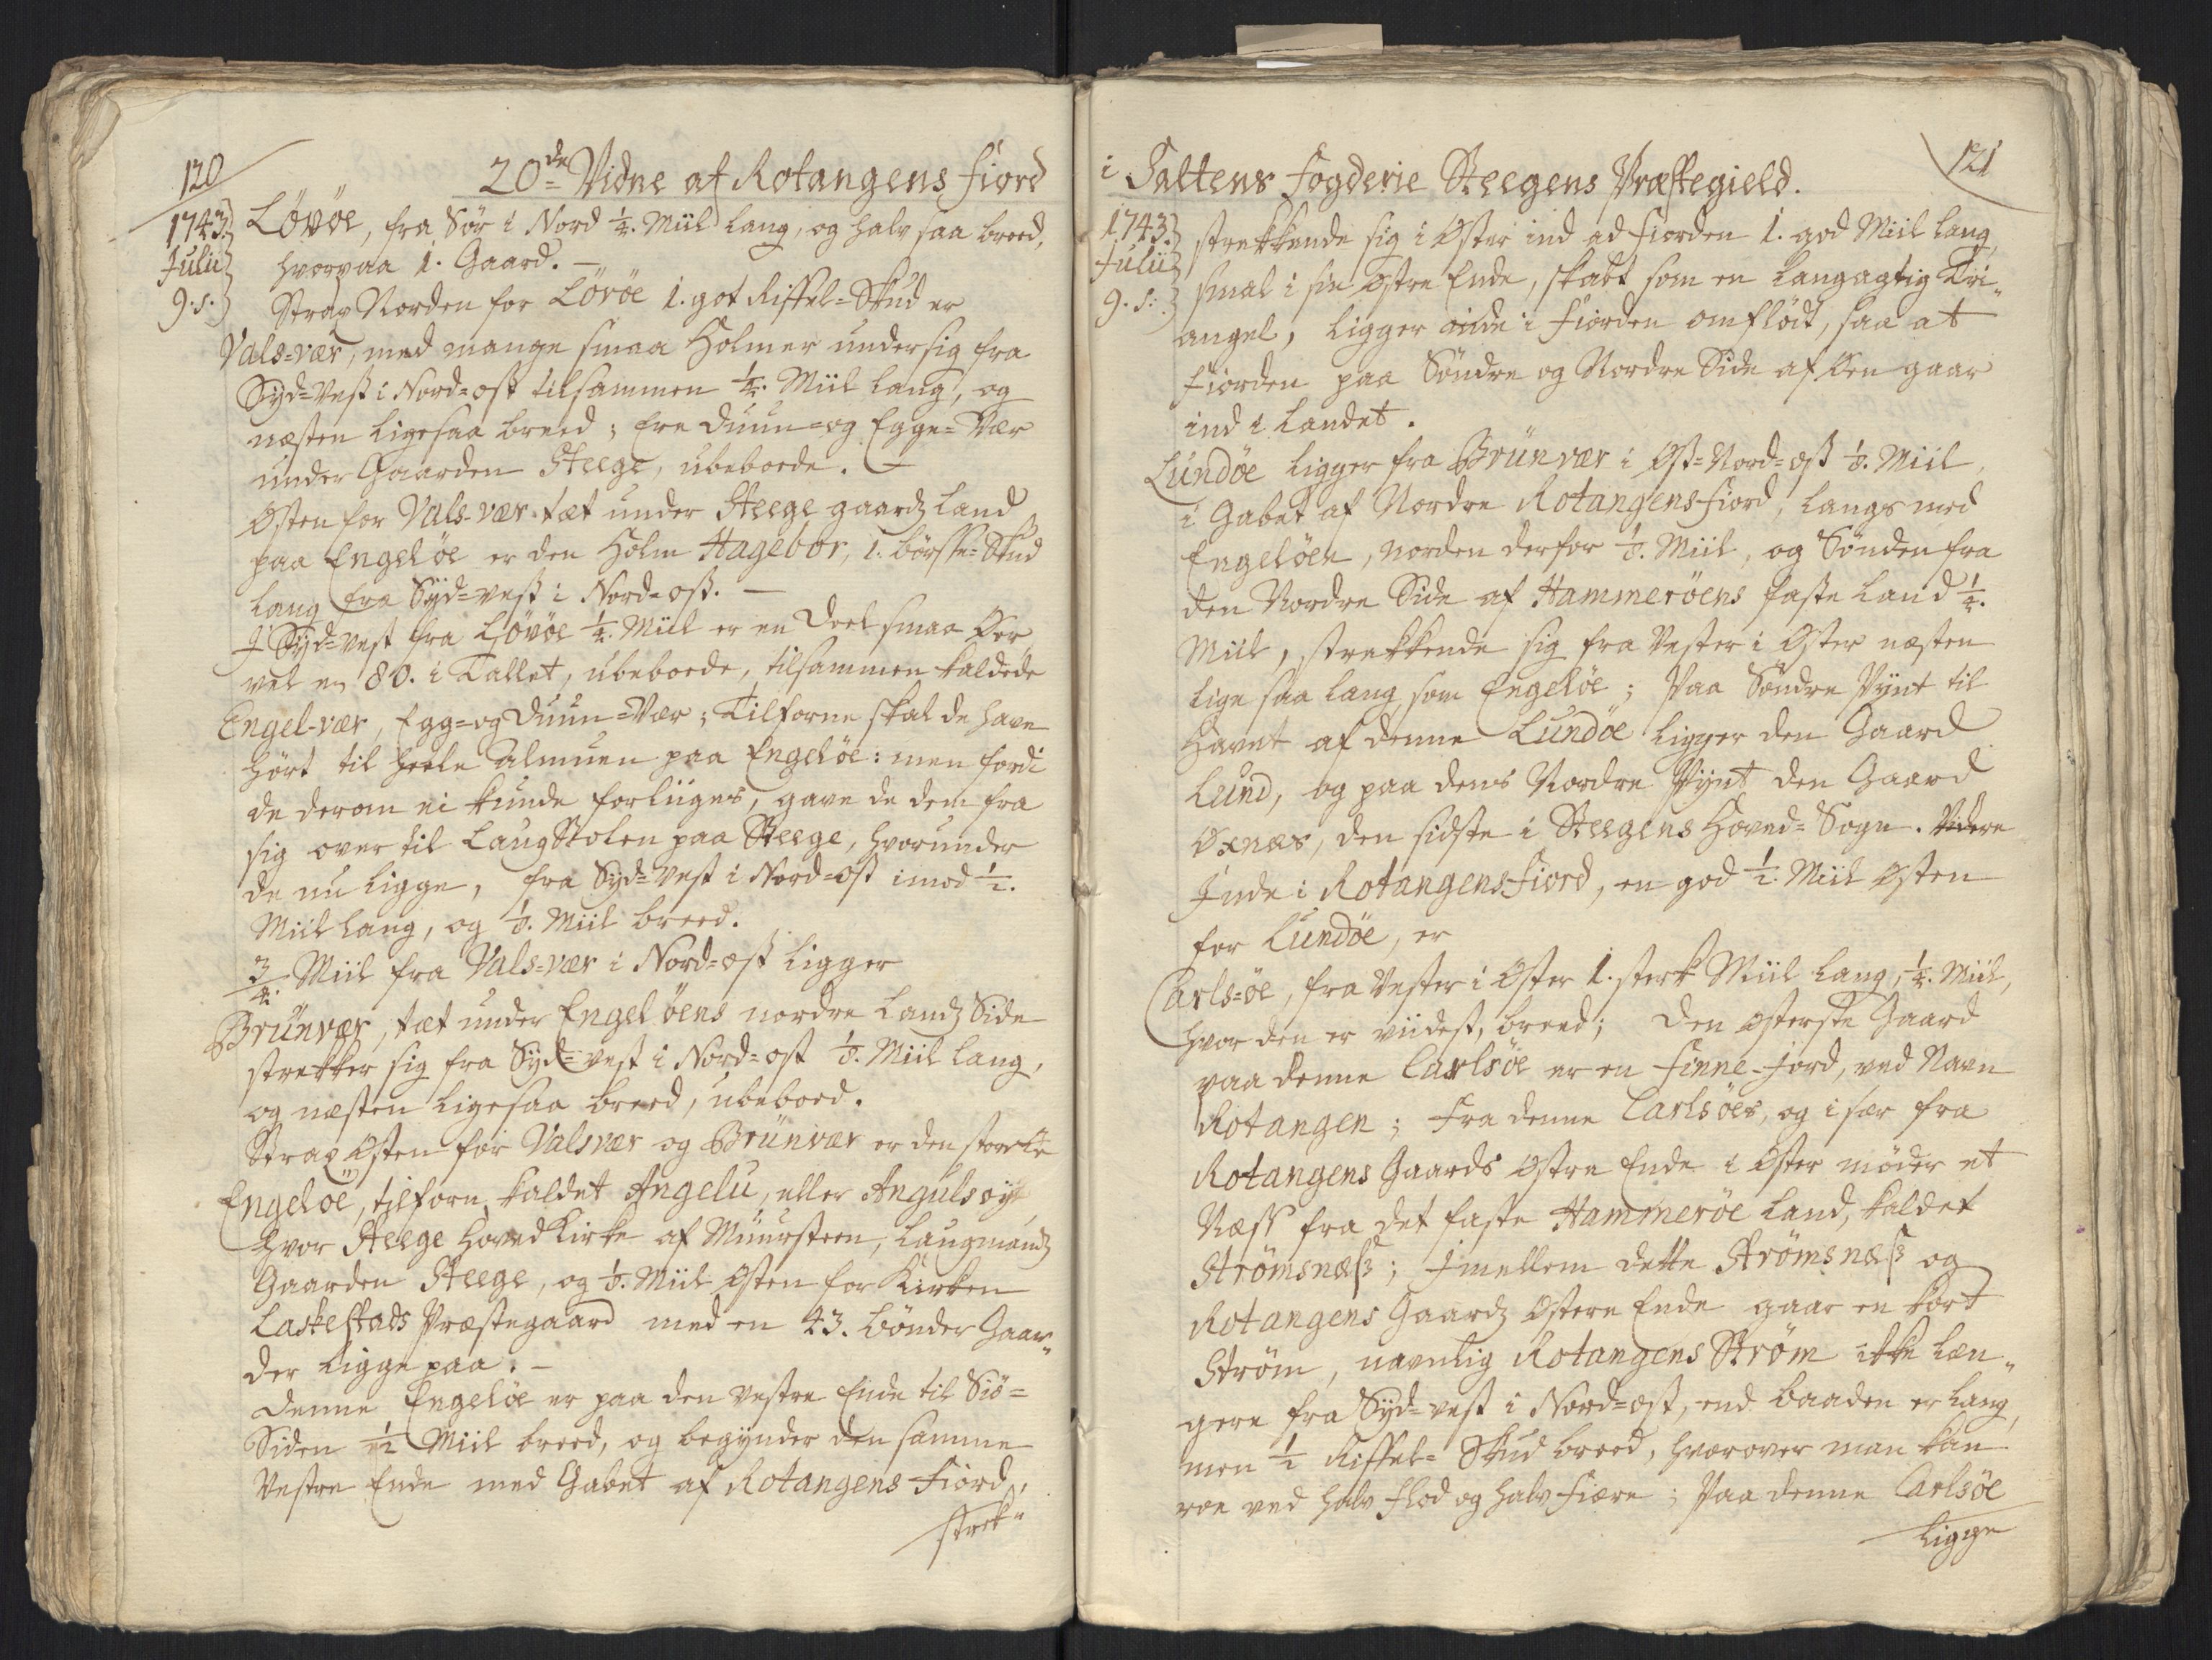 120
20de Vidne af Rotangens Fiord
1743.
Julii
9. s.
Løvöe, fra Sør i Nord ¼. Miil lang, og halv saa breed,
hvorpaa 1. Gaard. —
Strax Norden for Lövöe 1. got Riffel=Skud er
Vals=vær, med mange smaa Holmer under sig fra
Syd=vest i Nord=ost tilsammen ¼. Miil lang, og
næsten ligesaa breed; Ere Duun= og Egge=Vær
under Gaarden Steege, ubeboede. —
Østen for Vals-vær tæt under Steege gaardz Land
paa Engelöe er den Holm Hagebor, 1. börsse=Skud
lang fra Syd=vest i Nord=ost. —
I Syd=vest fra Lövöe ¼. Miil er en Deel smaa Øer
vel en 80. i Tallet, ubeboede, tilsammen kaldede
Engel-vær, Egg= og Duun=Vær; Tilforne skal de have
hört til heele Almuen paa Engelöe: men fordi
de derom ei kunde forliiges, gave de dem fra
sig over til LaugStolen paa Steege, hvorunder
de nu ligge, fra Syd=vest i Nord=ost imod ½.
Miil lang, og ⅛. Miil breed.
¾. Miil fra Vals=vær i Nord=ost ligger
Brünvær, tæt under Engelöens nordre Landz Side
strekker sig fra Syd=vest i Nord=ost ⅛. Miil lang,
og næsten ligesaa breed, ubeboed.
Strax Østen for Valsvær og Brünvær er den store
Engelöe, tilforn kaldet Angelu, eller Angulsøy,
hvor Steege HovedKirke af Muursteen, Laugmandz
Gaarden Steege, og ⅛. Miil Østen for Kirken
Laskestads Præstegaard med en 43. bönder Gaar„
der ligge paa. —
Denne Engelöe er paa den vestre Ende til Siö=
Siden ½ Miil breed, og begynder den samme
Vestre Ende med Gabet af Rotangens Fiord,
strek„
i Saltens Fogderie Steegens Præstegield.
121
1743.
Julii
9. s.
strekkende sig i Øster ind ad Fiorden 1. god Miil lang,
smal i sin Østre Ende, skabt som en langagtig Tri„
angel, ligger inde i Fiorden omflödt, saa at
Fiorden paa Söndre og Nordre Side af Øen gaar
ind i Landet.
Lundöe ligger fra Brünvær i Øst=Nord=ost ⅛. Miil,
i Gabet af Nordre Rotangens Fiord, langs med
Engelöen, norden derfor ⅛. Miil, og Sønden fra
den Nordre Side af Hammeröens faste Land ¼.
Miil, strekkende sig fra Vester i Øster næsten
lige saa lang som Engelöe; Paa Söndre Pynt til
Havet af denne Lundöe ligger den Gaard
Lund, og paa dens Nordre Pynt den Gaard
Oxnæs, den sidste i Steegens Hoved=Sogn. Videre
Inde i Rotangens Fiord, en god ½. Miil Østen
for Lundöe, er
Carls=öe, fra Vester i Øster 1. sterk Miil lang, ¼. Miil,
hvor den er viidest, breed; Den østerste Gaard
paa denne Carlsöe er en Finne-Jord, ved Navn
Rotangen; Fra denne Carlsöes, og i sær fra
Rotangens Gaards Østre Ende i Øster möder et
Næss fra det faste Hammeröe Land, kaldet
Strömsnæß; Imellem dette Strömsnæß og
Rotangens Gaardz Østere Ende gaar en kort
Ström, navnlig Rotangens Ström ikke læn„
gere fra Syd=vest i Nord=ost, end baaden er lang,
men ½ Riffel=Skud breed, hvorover man kan
roe ved halv Flod og halv Fiære; Paa denne Carlsöe
ligge